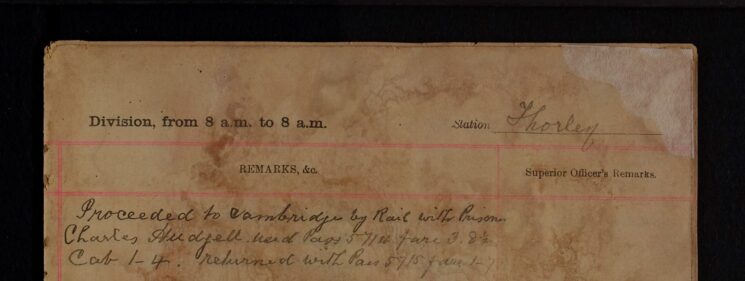 Division, from 8 a.m. to 8 a.m.
Station Thorley
REMARKS, &c.
Superior Officer's Remarks.
Proceeded to Cambridge by Rail with Prisoner
Charles Hudgell used Pass 5714 fare 3. 8½
Cab 1-4. returned with Pass 5715 fare